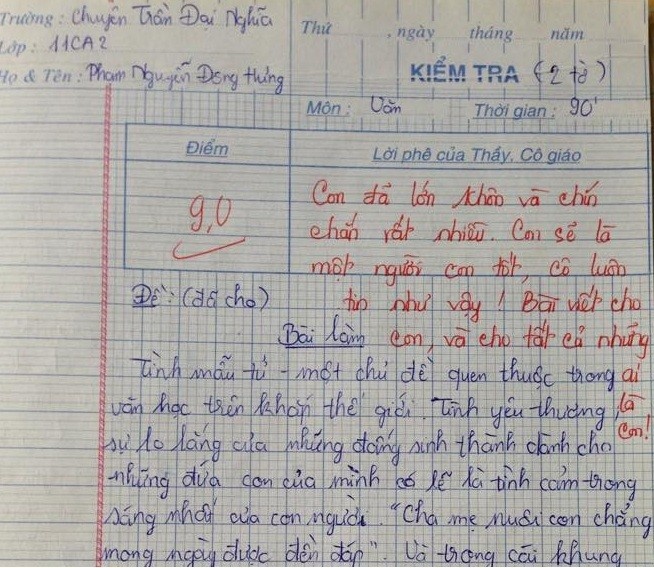 Trường : Chuyên Trần Đại Nghĩa
Lớp : 11CA2
Họ & Tên : Phạm Nguyễn Đông Hưng
Thứ , ngày tháng năm
KIỂM TRA (2 tờ)
Môn : Văn Thời gian : 90'
Điểm
Lời phê của Thầy, Cô giáo
9,0
Con đã lớn khôn và chín
chắn rất nhiều. Con sẽ là
một người con tốt, cô luôn
tin như vậy ! Bài viết cho
con, và cho tất cả những
ai
là
con!
Đề : (đã cho)
Bài làm
Tình mẫu tử - một chủ đề quen thuộc trong
văn học trên khắp thế giới. Tình yêu thương,
sự lo lắng của những đấng sinh thành dành cho
những đứa con của mình có lẽ là tình cảm trong
sáng nhất của con người. "Cha mẹ nuôi con chẳng
mong ngày được đền đáp". Và trong cái khung